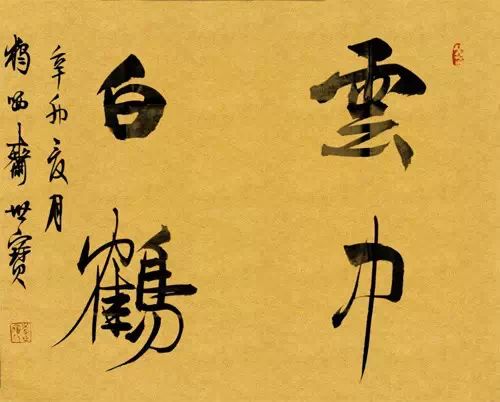 雲中
白鶴
辛卯夏月
齋世寶